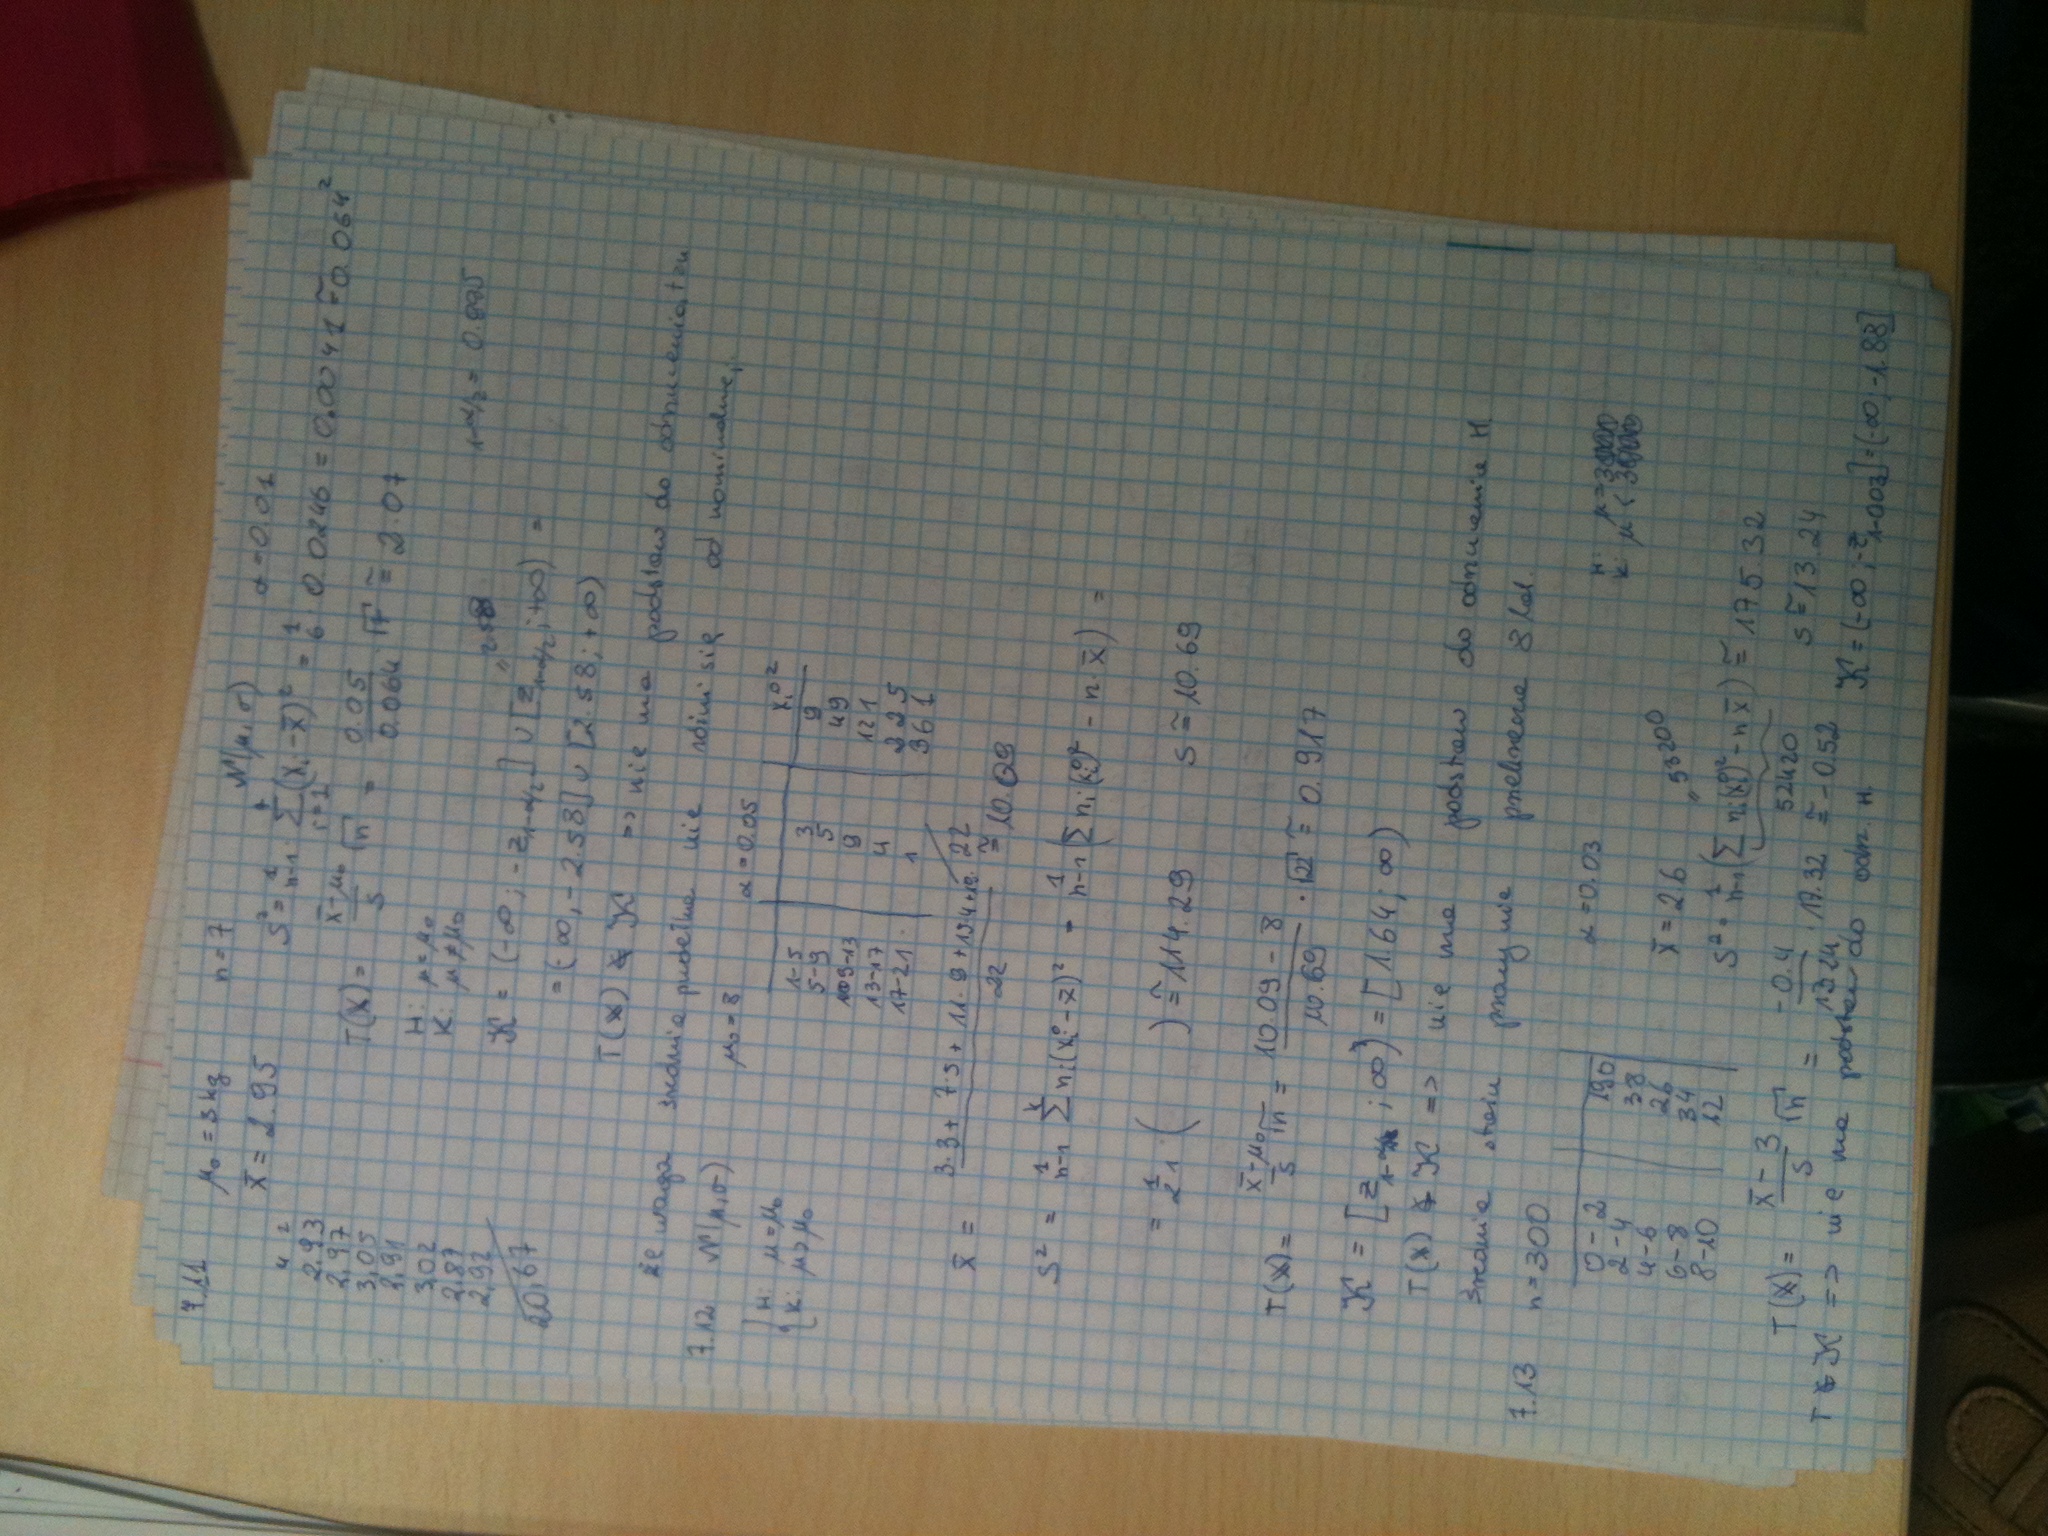 7.11 μ₀ = 3 kg n = 7 N(μ, σ) α = 0.01
x̄ = 2.95 S² = 1/(n-1) · Σ(xᵢ - x̄)² = 1/6 0.0246 = 0.0041 ≅ 0.064²
2.93
2,97
3,05
2,91
3,02
2,87
2,92
20,67
T(x) = (x̄ - μ₀)/s √n = 0.05/0.064 · √7 ≅ 2.07
H: μ = μ₀
K: μ ≠ μ₀
1-α/2 = 0.995
K = (-∞; -z₁₋α/₂] ∪ [z₁₋α/₂; +∞) =
= (-∞, -2.58] ∪ [2.58; +∞)
T(x) ∉ K => nie ma podstaw do odrzucenia
że waga średnia pudełka nie różni się od nominalnej.
7.12 N(μ, σ) μ₀ = 8 α = 0.05
H: μ = μ₀
K: μ > μ₀
xᵢ⁰ ²
1-5 3 9
5-9 5 49
9-13 9 121
13-17 4 225
17-21 1 361
22
x̄ = (3·3 + 7·5 + 11·9 + 15·4 + 19·)/22 ≅ 10.09
S² = 1/(n-1) Σ nᵢ(xᵢ⁰ - x̄)² = 1/(n-1) (Σ nᵢ(xᵢ⁰)² - n·x̄) =
= 1/21 · ( ) ≅ 114.29 s ≅ 10.69
T(x) = (x̄ - μ₀)/s √n = (10.09 - 8)/10.69 · √22 ≅ 0.917
K = [z₁₋α; ∞) = [1.64; ∞)
T(x) ∉ K => nie ma podstaw do odrzucenia H
średnia stażu pracy nie przekracza 8 lat.
7.13 n = 300
0-2 190
2-4 38
4-6 26
6-8 34
8-10 12
α = 0.03
H: μ = 3
K: μ < 3
x̄ = 2.6 53200
S² = 1/(n-1) (Σ nᵢ(xᵢ⁰)² - n x̄) ≅ 175.32
52420 s ≅ 13.24
T(x) = (x̄ - 3)/s √n = -0.4/13.24 · 17.32 ≅ -0.52
T ∉ K => nie ma podstaw do odrz. H. K = (-∞; -z₁₋₀.₀₃] = (-∞; -1.88]